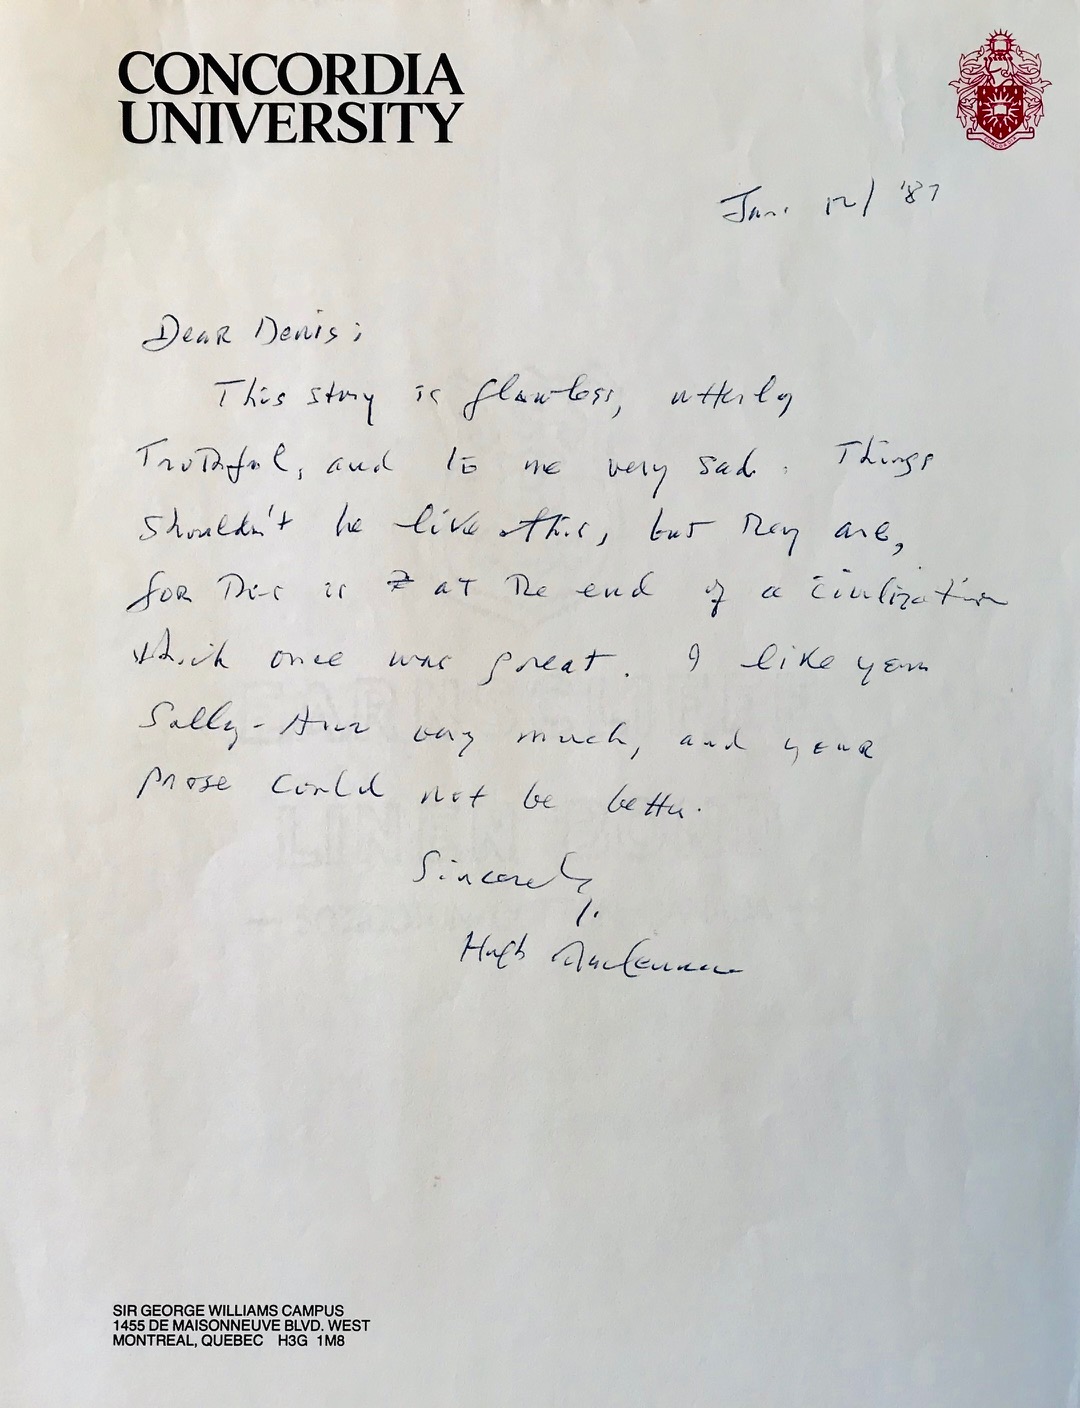 CONCORDIA
UNIVERSITY
CONCORDIA
Jan. 12/ '87
Dear Denis;
This story is flawless, utterly
truthful, and to me very sad. Things
shouldn't be like this, but they are,
for this is at the end of a civilization
which once was great. I like your
Sally-Ann very much, and your
prose could not be better.
Sincerely,
Hugh MacLennan
SIR GEORGE WILLIAMS CAMPUS
1455 DE MAISONNEUVE BLVD. WEST
MONTREAL, QUEBEC H3G 1M8